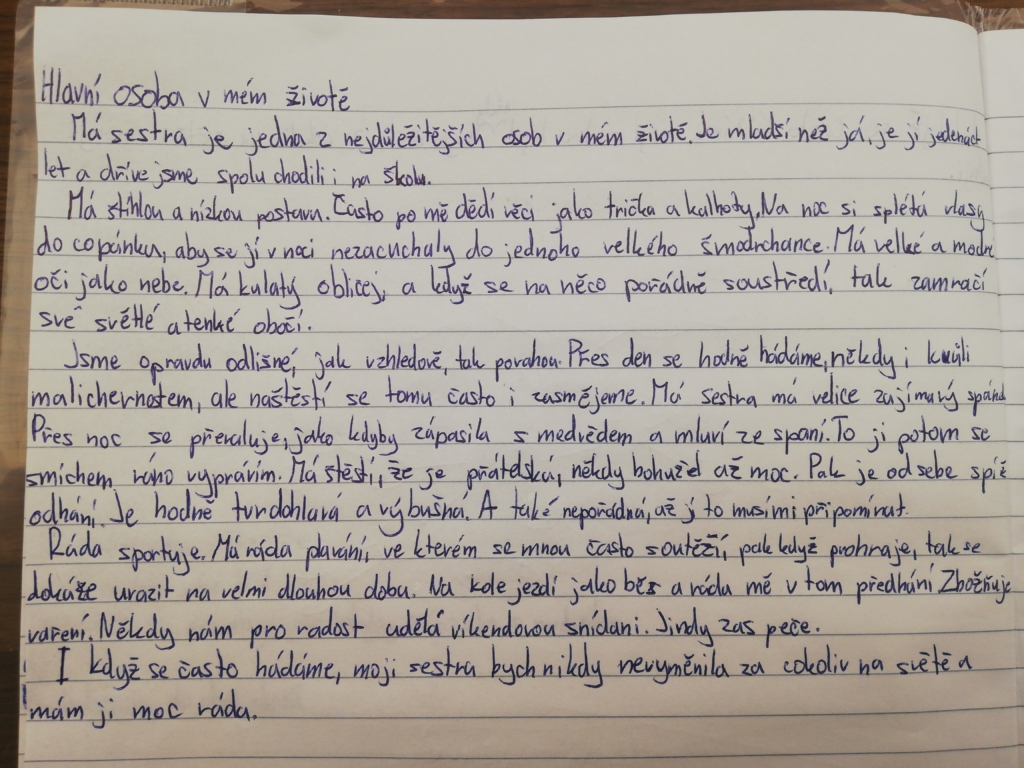 Hlavní osoba v mém životě
Má sestra je jedna z nejdůležitějších osob v mém životě. Je mladší než já, je jí jedenáct
let a dříve jsme spolu chodili i na školu.
Má štíhlou a nízkou postavu. Často po mě dědí věci jako trička a kalhoty. Na noc si splétá vlasy
do copánku, aby se jí v noci nezacuchaly do jednoho velkého šmodrchance. Má velké a modré
oči jako nebe. Má kulatý oblicej, a když se na něco pořádně soustředí, tak zamračí
své světlé a tenké obočí.
Jsme opravdu odlišné, jak vzhledově, tak povahou. Přes den se hodně hádáme, někdy i kvůli
malichernostem, ale naštěstí se tomu často i zasmějeme. Má sestra má velice zajímavý spánek
Přes noc se převaluje, jako kdyby zápasila s medvědem a mluví ze spaní. To ji potom se
smíchem ráno vyprávím. Má štěstí, že je přátelská, někdy bohužel až moc. Pak je od sebe spíš
odhání. Je hodně tvrdohlavá a výbušná. A také nepořádná, až jí to musími připomínat.
Ráda sportuje. Má ráda plavání, ve kterém se mnou často soutěží, pak když prohraje, tak se
dokáže urazit na velmi dlouhou dobu. Na kole jezdí jako běs a ráda mě v tom předhání Zbožňuje
vaření. Někdy nám pro radost udělá víkendovou snídani. Jindy zas peče.
I když se často hádáme, moji sestra bych nikdy nevyměnila za cokoliv na světě a
mám ji moc ráda.